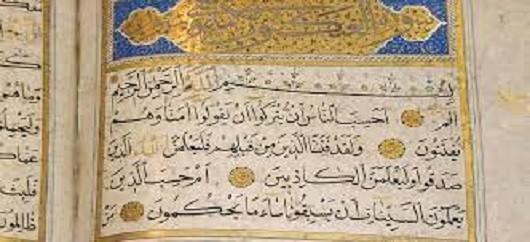 بسم الله الرحمن الرحيم
الم احسب الناس ان يتركوا ان يقولوا امنا وهم
لا يفتنون ولقد فتنا الذين من قبلهم فليعلمن الله الذين
صدقوا وليعلمن الكاذبين ام حسب الذين
يعملون السيئات ان يسبقونا ساء ما يحكمون من
ظالمون